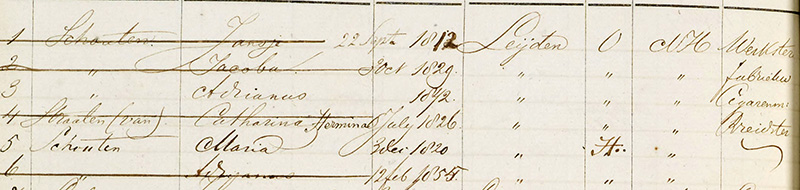 1 Schouten. Jansje 22 Sept 1812 Leijden O NH Werkster
2 " Jacoba. Oct 1829. " " " fabriekw
3 " Adrianus 1842. " " " Cigarenm:
4 Straaten (van) Catharina Hermina July 1826 " " " Breidster
5 Schouten Maria 3 Dec 1820 " H. "
6 " Adrijanus 12 feb 1855. " " "